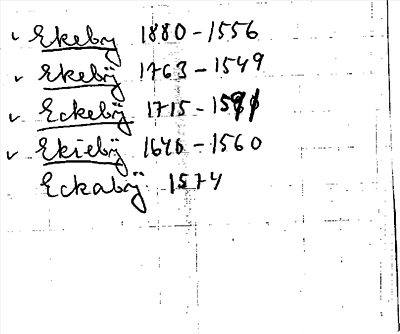 ✓ Ekeby 1880-1556
✓ Ekebÿ 1763-1549
✓ Eckebÿ 1715-
✓ Ekiebÿ 1640-1560
Eckabÿ 1574